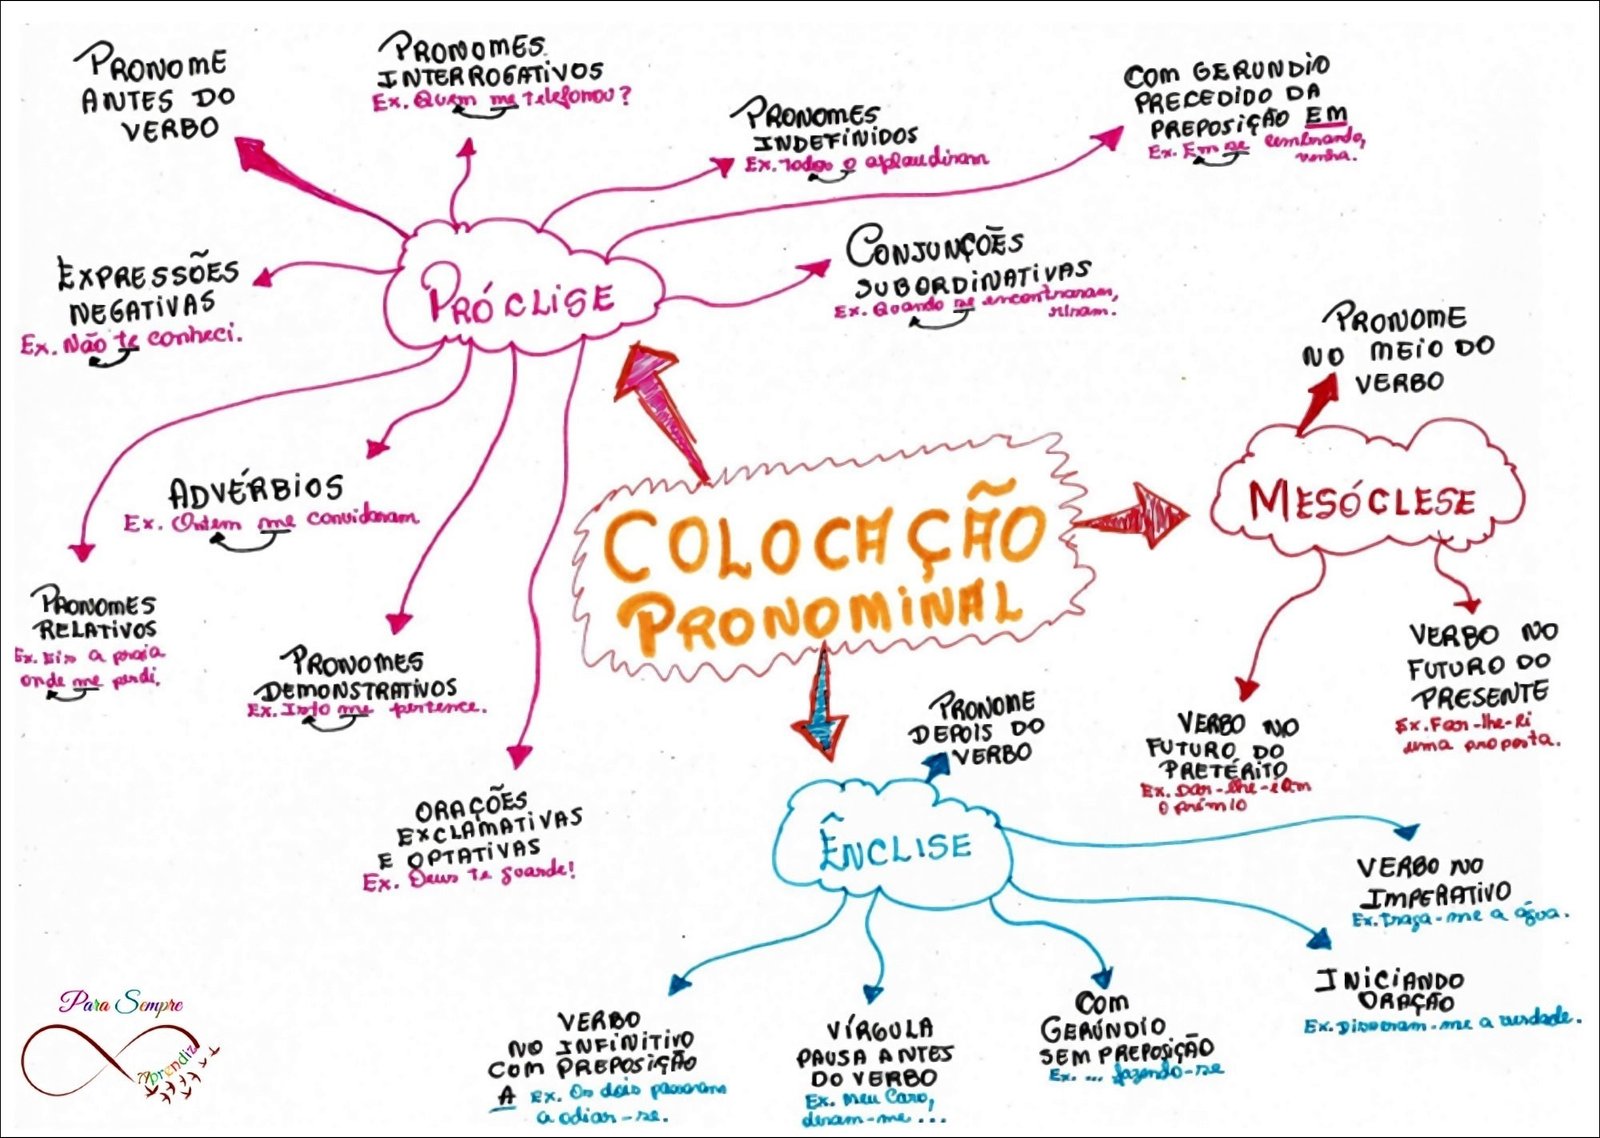 PRONOME
ANTES DO
VERBO
PRONOMES
INTERROGATIVOS
Ex. Quem me telefonou?
PRONOMES
INDEFINIDOS
Ex. Todos o aplaudiram
COM GERUNDIO
PRECEDIDO DA
PREPOSIÇÃO EM
Ex. Em se lembrando,
venha.
EXPRESSÕES
NEGATIVAS
Ex. Não te conheci.
PRÓCLISE
CONJUNÇÕES
SUBORDINATIVAS
Ex. Quando se encontraram,
riram.
ADVÉRBIOS
Ex. Ontem me convidaram
PRONOMES
RELATIVOS
Ex. Eis a praia
onde me perdi.
PRONOMES
DEMONSTRATIVOS
Ex. Isto me pertence.
ORAÇÕES
EXCLAMATIVAS
E OPTATIVAS
Ex. Deus te guarde!
COLOCAÇÃO
PRONOMINAL
PRONOME
NO MEIO DO
VERBO
MESÓCLESE
VERBO NO
FUTURO DO
PRESENTE
Ex. Far-lhe-ei
uma proposta.
VERBO NO
FUTURO DO
PRETÉRITO
Ex. Dar-lhe-iam
o prêmio
PRONOME
DEPOIS DO
VERBO
ÊNCLISE
VERBO NO
IMPERATIVO
Ex. Traga-me a água.
INICIANDO
ORAÇÃO
Ex. Disseram-me a verdade.
COM
GERÚNDIO
SEM PREPOSIÇÃO
Ex. ... fazendo-se
VÍRGULA
PAUSA ANTES
DO VERBO
Ex. Meu Caro,
deram-me ...
VERBO
NO INFINITIVO
COM PREPOSIÇÃO
A Ex. Os dois passaram
a odiar-se.
Para Sempre
Aprendiz